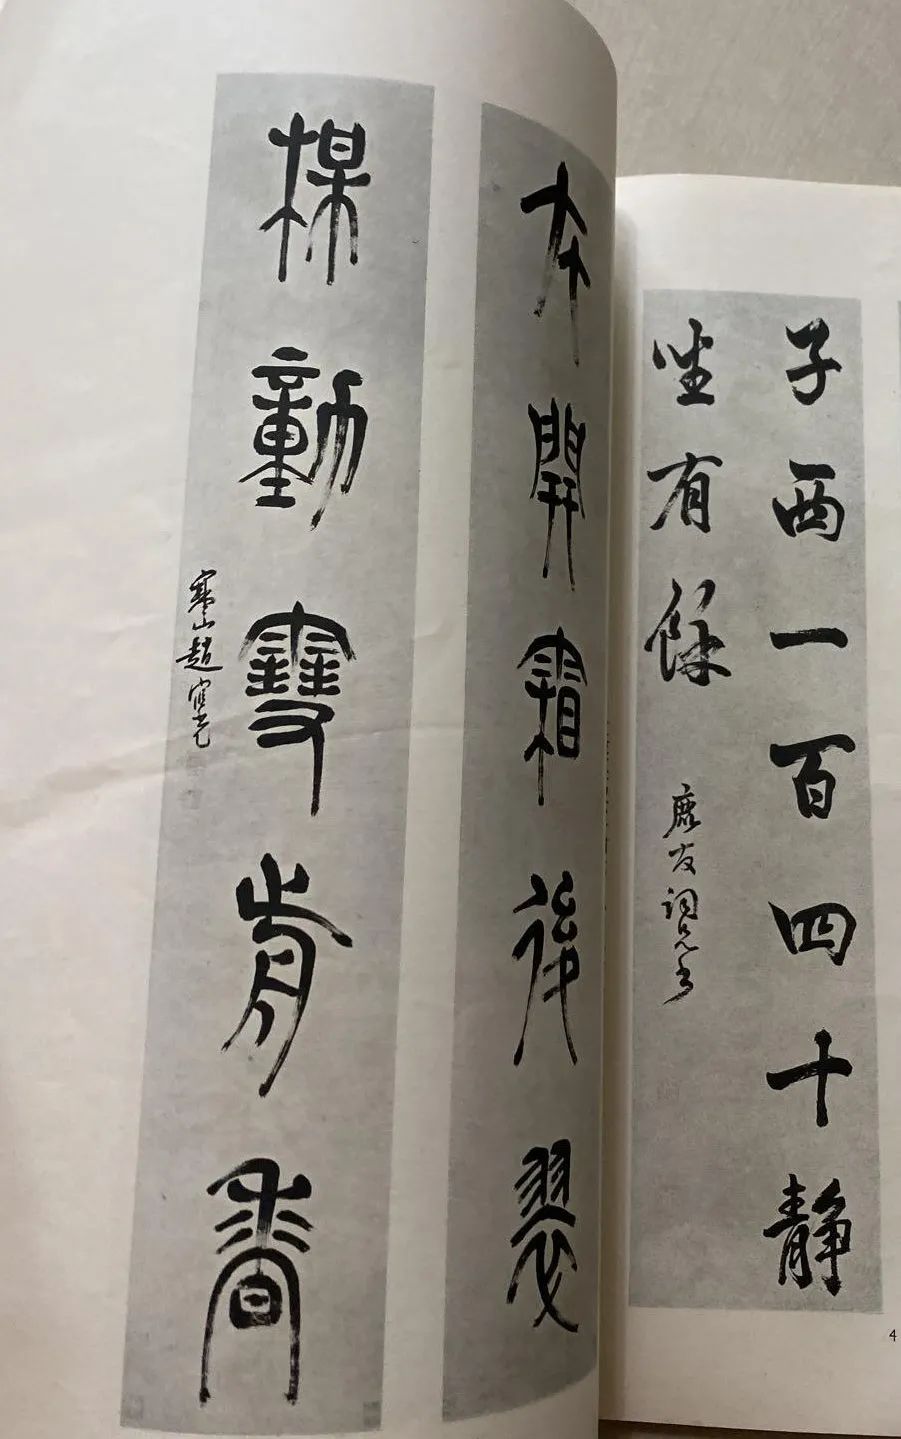 子西一百四十静
坐有餘
鹿友詞兄
竹開霜後翠
楳動雪前香
寒山趙宧光
4